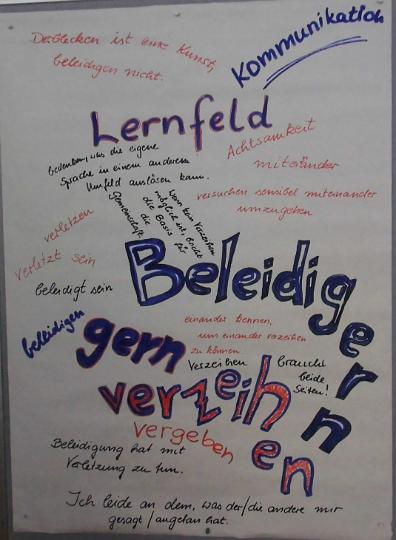 Derblecken ist eine Kunst,
beleidigen nicht.
Kommunikation
Lernfeld
Achtsamkeit
miteinander
bedenken, was die eigene
Sprache in einem anderen
Umfeld auslösen kann.
versuchen sensibel miteinander
umzugehen
Wenn kein Verzeihen
möglich ist, bricht
die Basis für
die
Gemeinschaft
verletzen
verletzt sein
beleidigt sein
beleidigen
Beleidigern
gern
verzeihen
einander kennen,
um einander verzeihen
zu können
Verzeihen
braucht
beide
Seiten!
vergeben
Beleidigung hat mit
Verletzung zu tun.
Ich leide an dem, was der/die andere mir
gesagt/angetan hat.